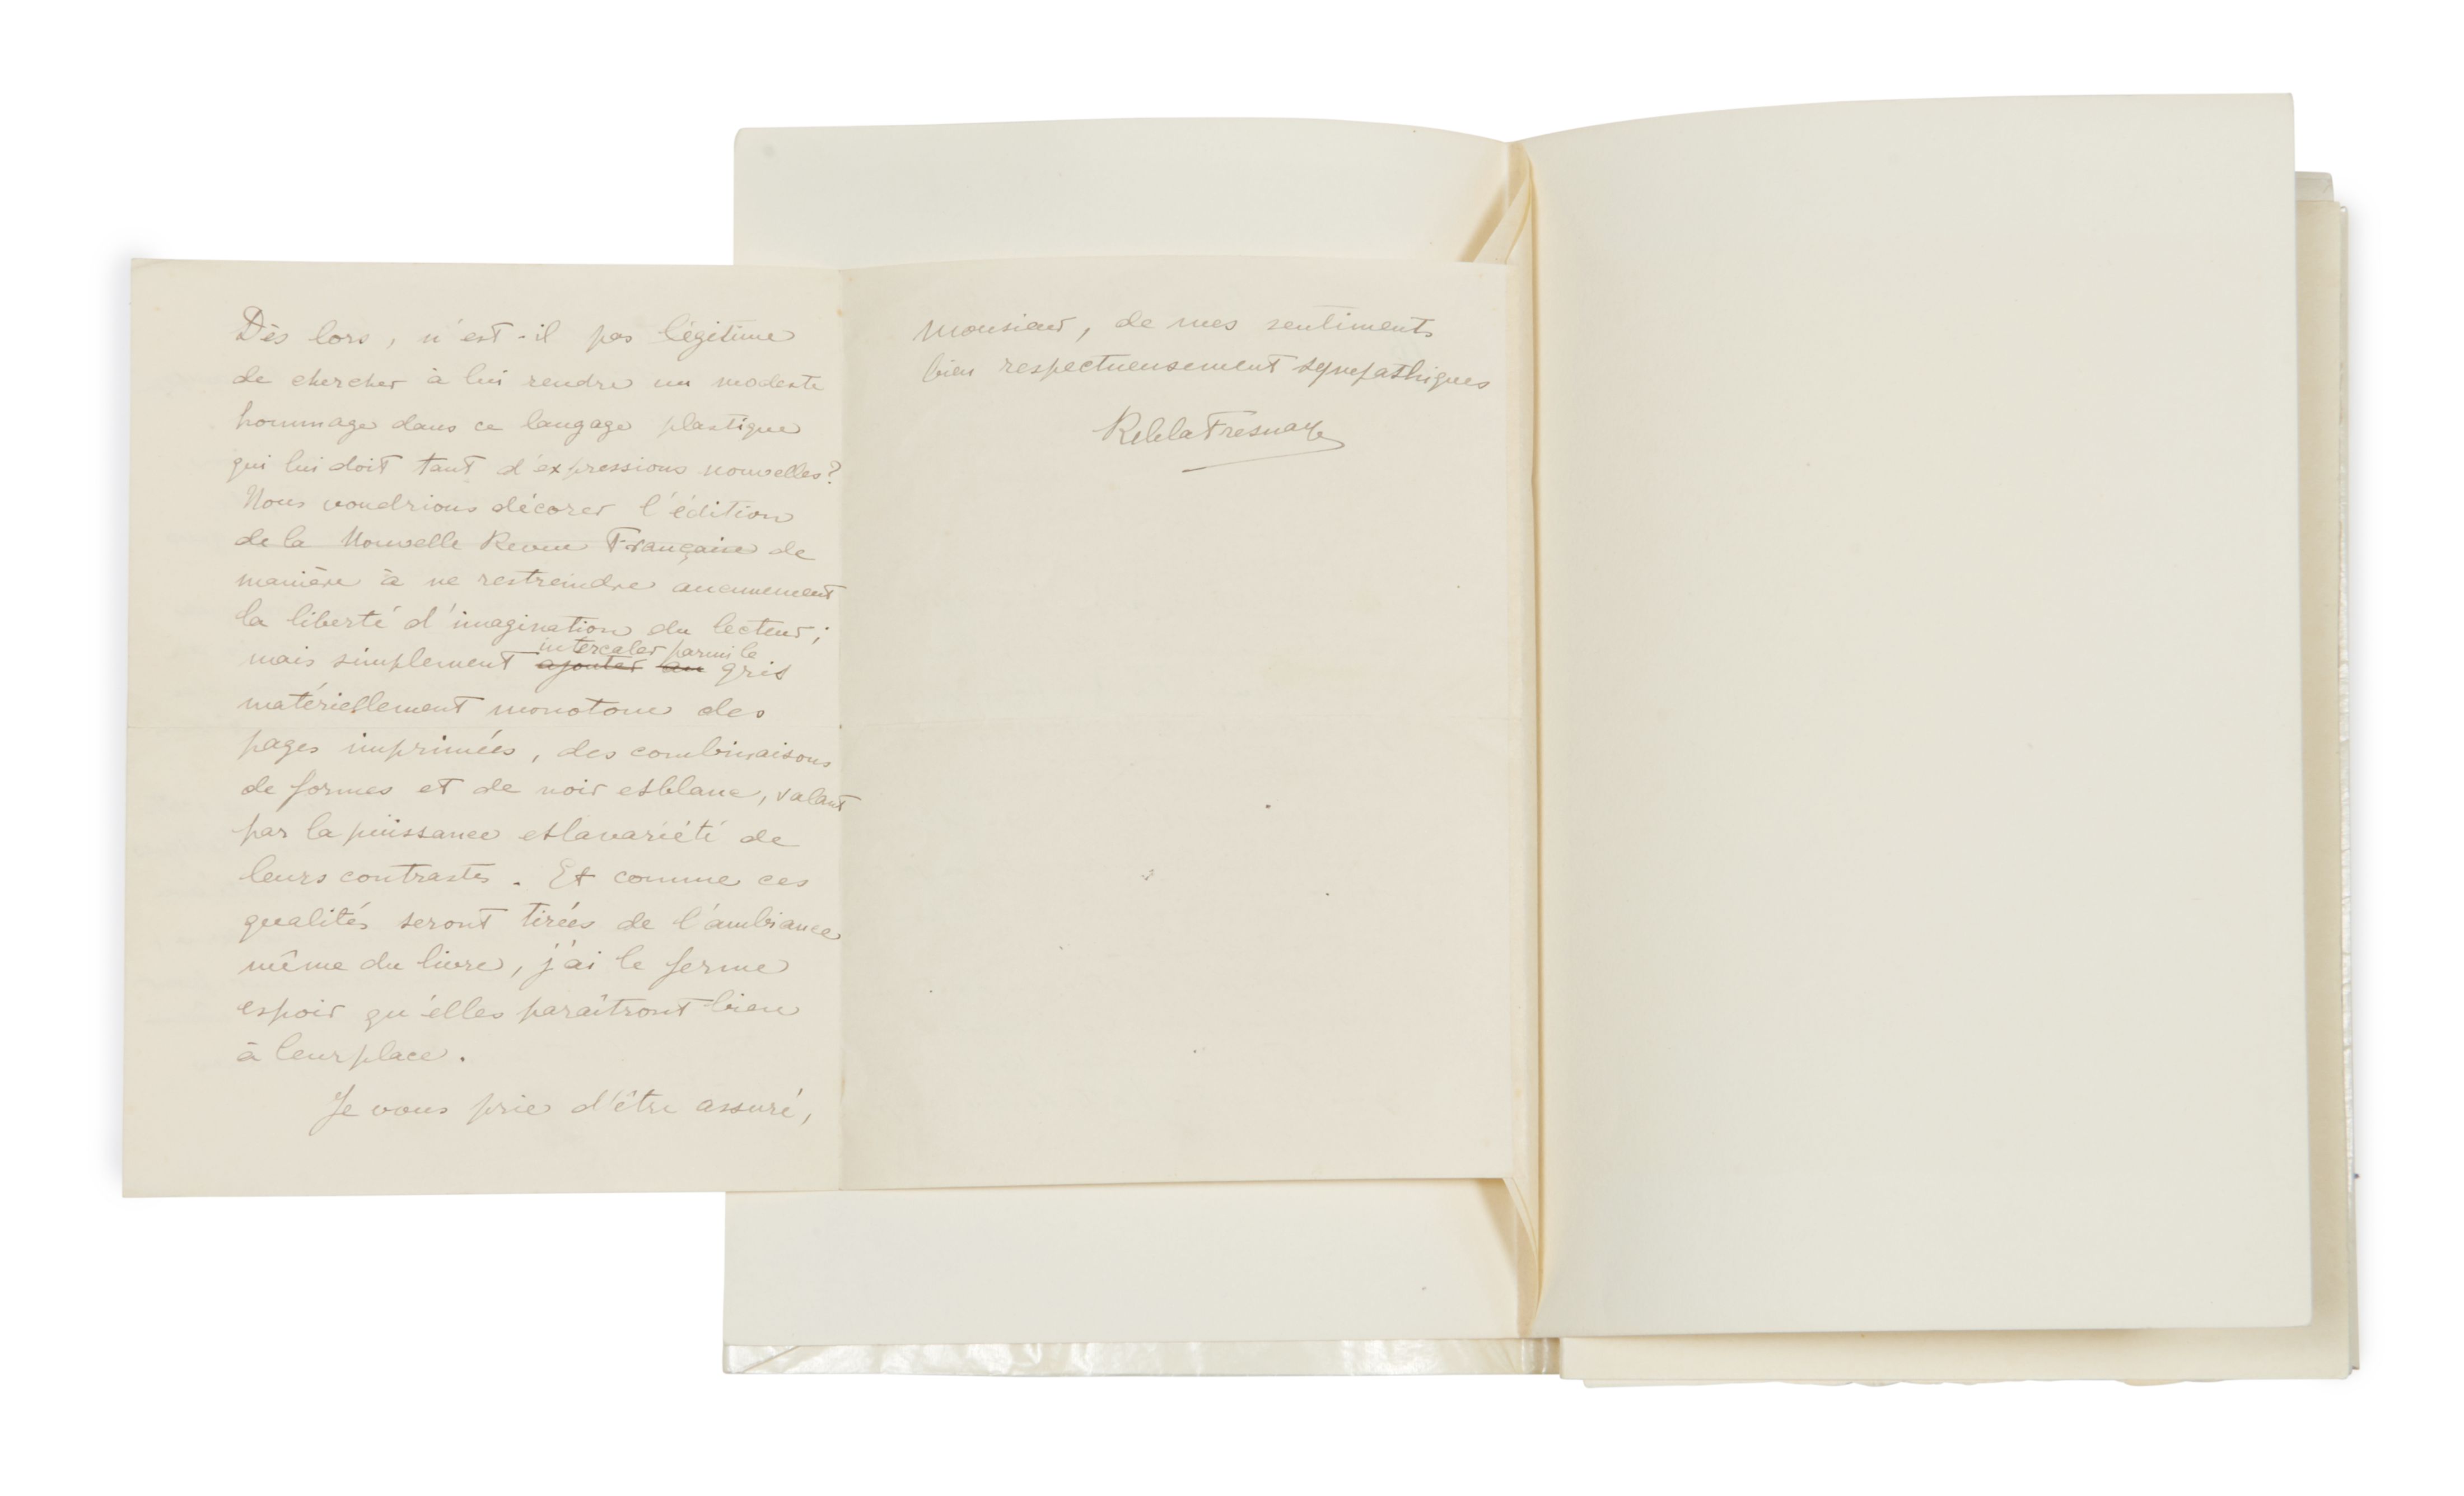 Dès lors, n'est-il pas légitime
de chercher à lui rendre un modeste
hommage dans ce langage plastique
qui lui doit tant d'expressions nouvelles?
Nous voudrions décorer l'édition
de la Nouvelle Revue Française de
manière à ne restreindre aucunement
la liberté d'imagination du lecteur;
intercaler parmi le
mais simplement ajouter au gris
matériellement monotone des
pages imprimées, des combinaisons
de formes et de noir et blanc, valant
par la puissance et la variété de
leurs contrastes. Et comme ces
qualités seront tirées de l'ambiance
même du livre, j'ai le ferme
espoir qu'elles paraîtront bien
à leur place.
Je vous prie d'être assuré,
Monsieur, de mes sentiments
bien respectueusement sympathiques
R de la Fresnaye